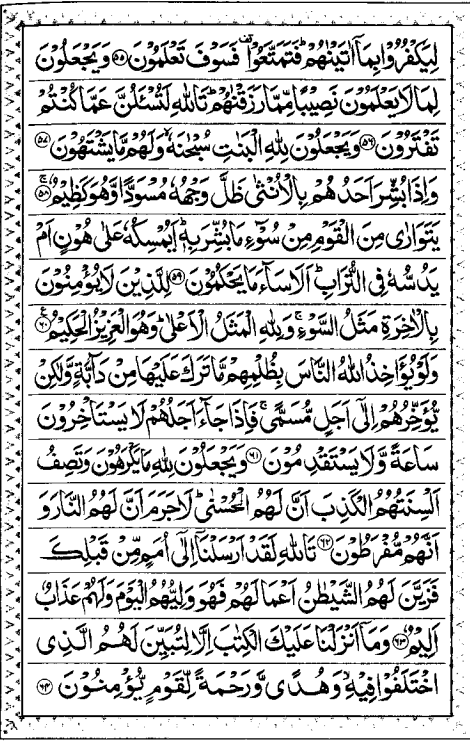 لِيَكْفُرُوْا بِمَاۤ اٰتَيْنٰهُمْ ؕ فَتَمَتَّعُوْا ۫ فَسَوْفَ تَعْلَمُوْنَ ﴿۵۵﴾ وَ يَجْعَلُوْنَ
لِمَا لَا يَعْلَمُوْنَ نَصِيْبًا مِّمَّا رَزَقْنٰهُمْ ؕ تَاللّٰهِ لَتُسْـَٔلُنَّ عَمَّا كُنْتُمْ
تَفْتَرُوْنَ ﴿۵۶﴾ وَ يَجْعَلُوْنَ لِلّٰهِ الْبَنٰتِ سُبْحٰنَهٗ ۙ وَ لَهُمْ مَّا يَشْتَهُوْنَ ﴿۵۷﴾
وَ اِذَا بُشِّرَ اَحَدُهُمْ بِالْاُنْثٰى ظَلَّ وَجْهُهٗ مُسْوَدًّا وَّ هُوَ كَظِيْمٌ ﴿۵۸﴾ۚ
يَتَوَارٰى مِنَ الْقَوْمِ مِنْ سُوْٓءِ مَا بُشِّرَ بِهٖ ؕ اَيُمْسِكُهٗ عَلٰى هُوْنٍ اَمْ
يَدُسُّهٗ فِى التُّرَابِ ؕ اَلَا سَآءَ مَا يَحْكُمُوْنَ ﴿۵۹﴾ لِلَّذِيْنَ لَا يُؤْمِنُوْنَ
بِالْاٰخِرَةِ مَثَلُ السَّوْءِ ۚ وَ لِلّٰهِ الْمَثَلُ الْاَعْلٰى ؕ وَ هُوَ الْعَزِيْزُ الْحَكِيْمُ ﴿۶۰﴾ع
وَ لَوْ يُؤَاخِذُ اللّٰهُ النَّاسَ بِظُلْمِهِمْ مَّا تَرَكَ عَلَيْهَا مِنْ دَآبَّةٍ وَّ لٰكِنْ
يُّؤَخِّرُهُمْ اِلٰٓى اَجَلٍ مُّسَمًّى ۚ فَاِذَا جَآءَ اَجَلُهُمْ لَا يَسْتَاْخِرُوْنَ
سَاعَةً وَّ لَا يَسْتَقْدِمُوْنَ ﴿۶۱﴾ وَ يَجْعَلُوْنَ لِلّٰهِ مَا يَكْرَهُوْنَ وَ تَصِفُ
اَلْسِنَتُهُمُ الْكَذِبَ اَنَّ لَهُمُ الْحُسْنٰى ؕ لَا جَرَمَ اَنَّ لَهُمُ النَّارَ وَ
اَنَّهُمْ مُّفْرَطُوْنَ ﴿۶۲﴾ تَاللّٰهِ لَقَدْ اَرْسَلْنَاۤ اِلٰٓى اُمَمٍ مِّنْ قَبْلِكَ
فَزَيَّنَ لَهُمُ الشَّيْطٰنُ اَعْمَالَهُمْ فَهُوَ وَلِيُّهُمُ الْيَوْمَ وَ لَهُمْ عَذَابٌ
اَلِيْمٌ ﴿۶۳﴾ وَ مَاۤ اَنْزَلْنَا عَلَيْكَ الْكِتٰبَ اِلَّا لِتُبَيِّنَ لَهُمُ الَّذِى
اخْتَلَفُوْا فِيْهِ ۙ وَ هُدًى وَّ رَحْمَةً لِّقَوْمٍ يُّؤْمِنُوْنَ ﴿۶۴﴾